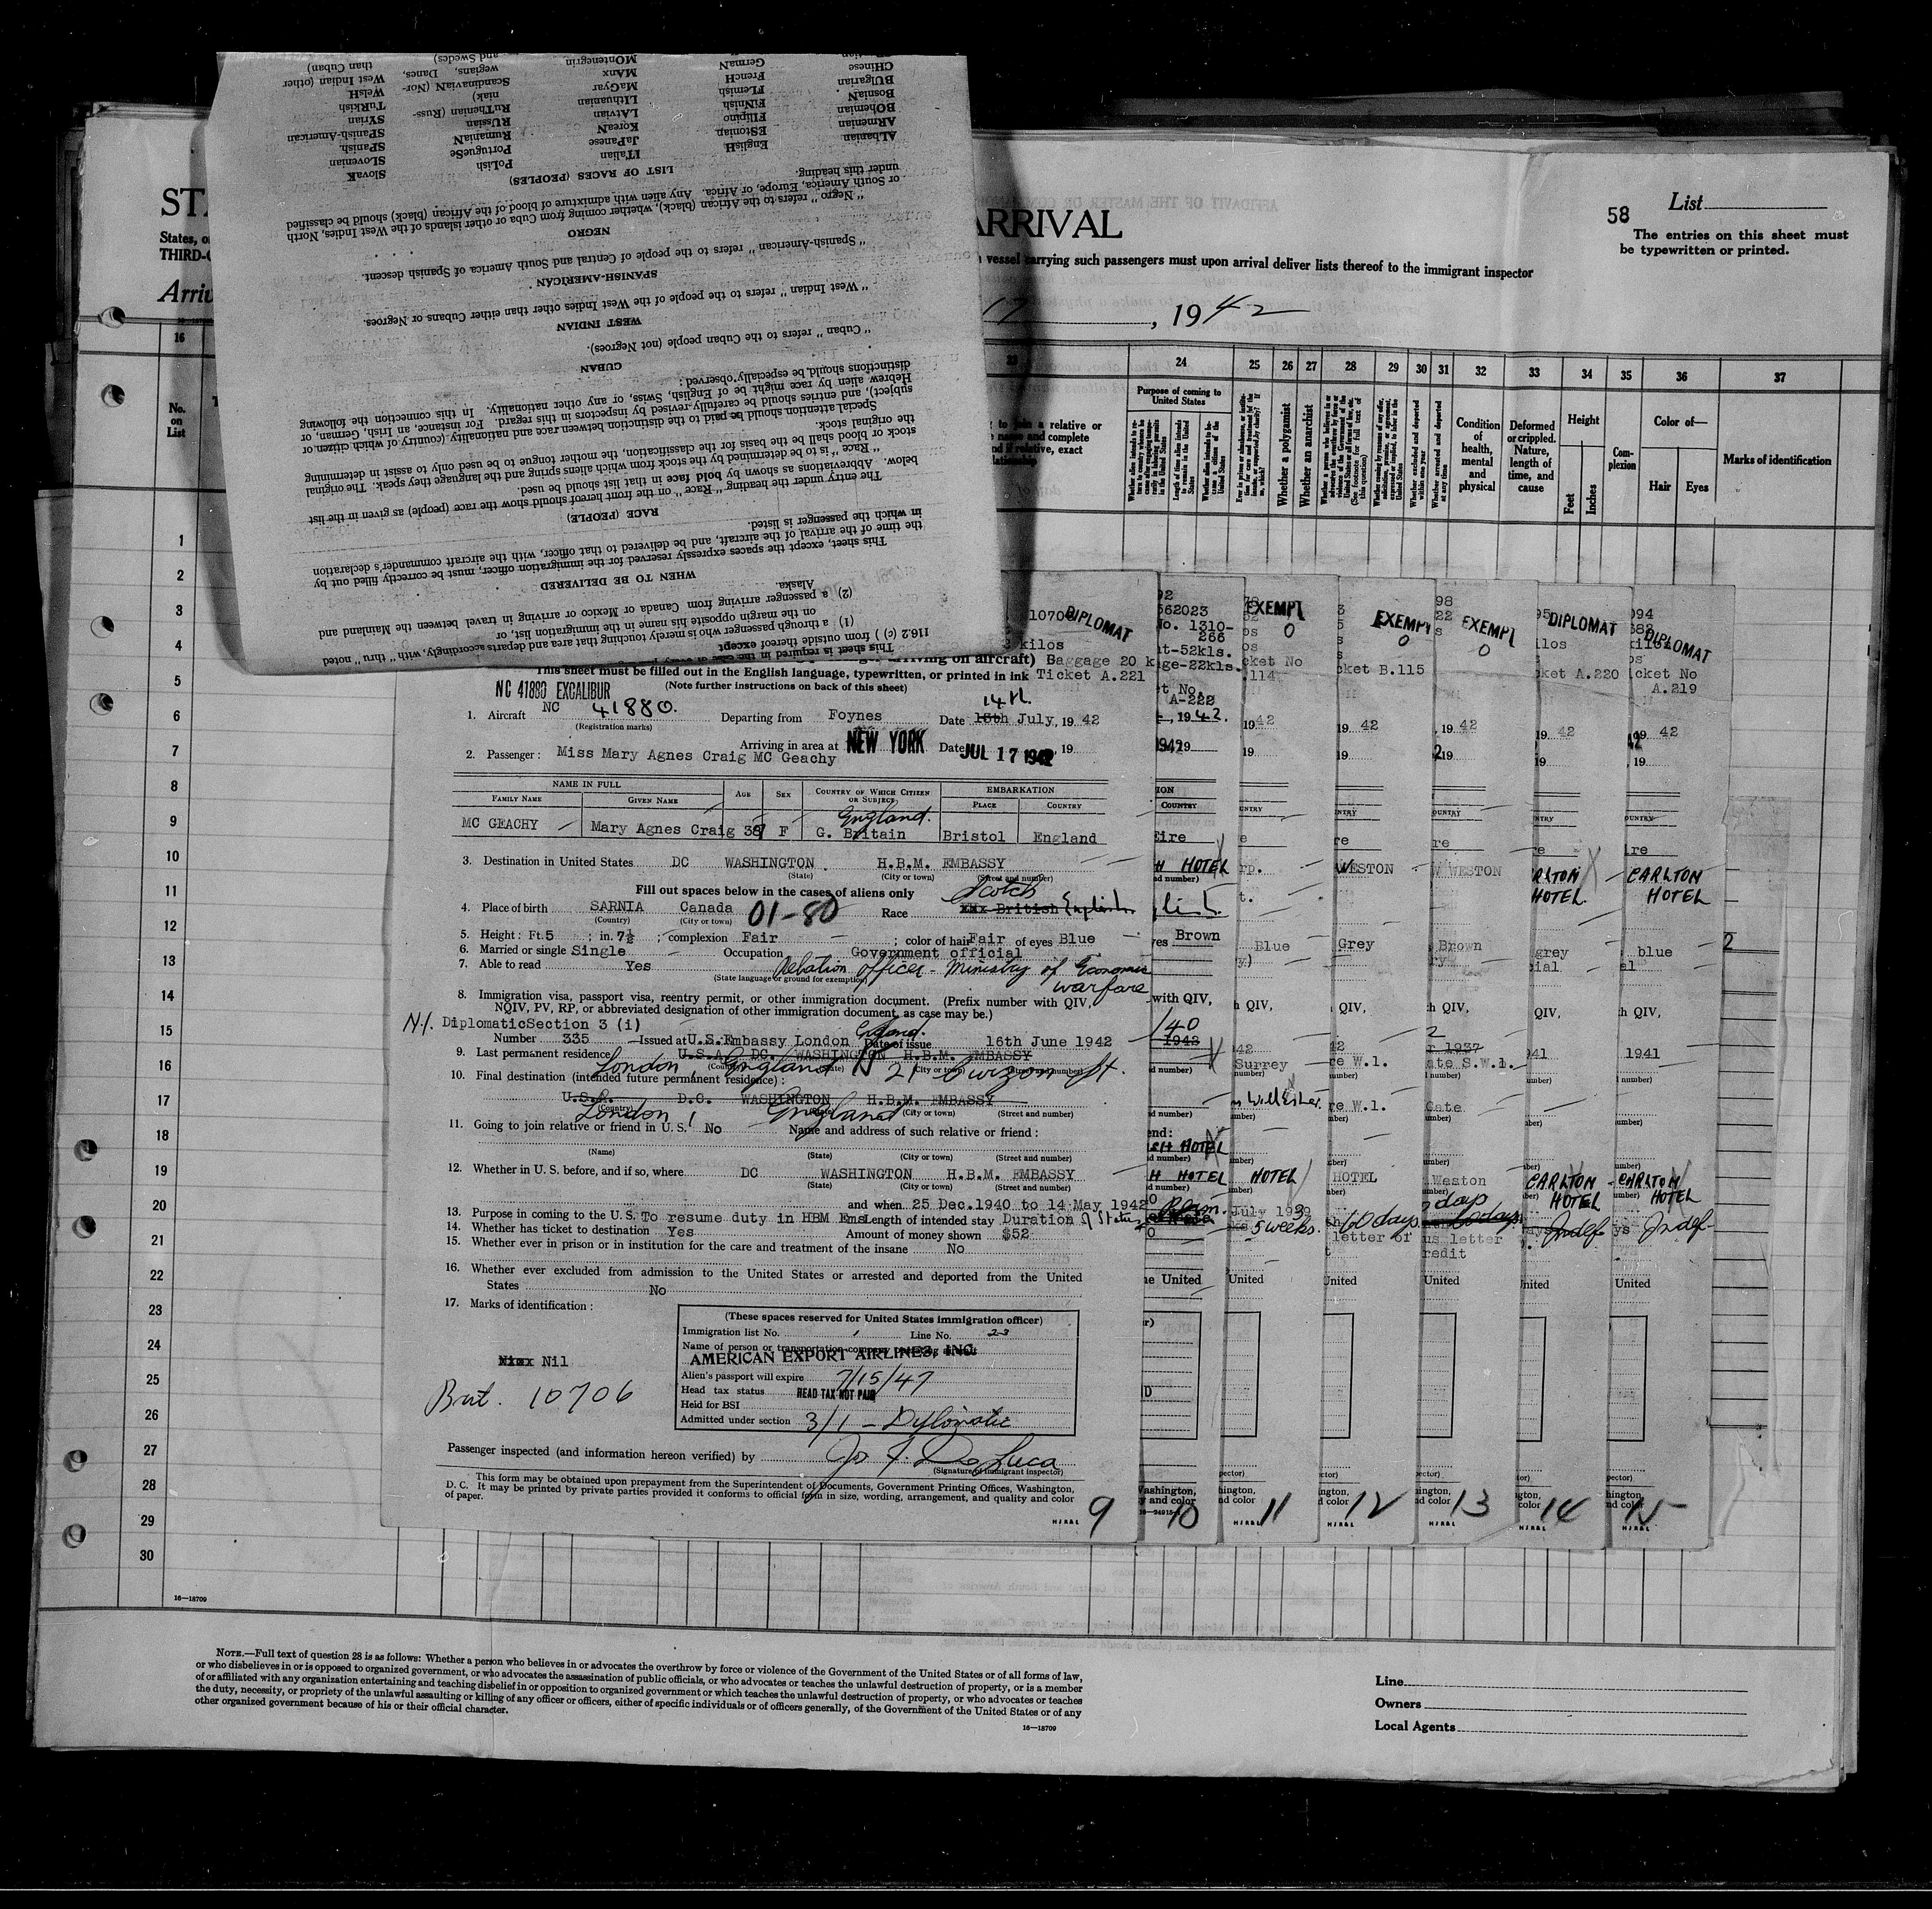 STA
ARRIVAL
58
List
The entries on this sheet must
be typewritten or printed.
States, o
THIRD-C
vessel carrying such passengers must upon arrival deliver lists thereof to the immigrant inspector
Arriv
17, 1942
16
23
24
25
26
27
28
29
30
31
32
33
34
35
36
37
No.
on
List
to join a relative or
name and complete
and if relative, exact
relationship
Purpose of coming to
United States
Whether a polygamist
Whether an anarchist
Condition
of
health,
mental
and
physical
Deformed
or crippled.
Nature,
length of
time, and
cause
Height
Feet
Inches
Com-
plexion
Color of—
Hair
Eyes
Marks of identification
1
2
3
4
5
6
7
8
9
10
11
12
13
14
15
16
17
18
19
20
21
22
23
24
25
26
27
28
29
30
This sheet is required in the case of every
116.2 (c) ) from outside thereof except
(1) a through passenger who is merely touching that area and departs accordingly, with "thru" noted
on the margin opposite his name in the immigration list, or
(2) a passenger arriving from Canada or Mexico or arriving in travel between the Mainland and
Alaska.
WHEN TO BE DELIVERED
This sheet, except the spaces expressly reserved for the immigration officer, must be correctly filled out by
the time of the arrival of the aircraft, and be delivered to that officer, with the aircraft commander's declaration
in which the passenger is listed.
RACE (PEOPLE)
The entry under the heading "Race" on the front hereof should show the race (people) as given in the list
below. Abbreviations as shown by bold face in that list should be used.
"Race" is to be determined by the stock from which aliens spring and the language they speak. The original
stock or blood shall be the basis for the classification, the mother tongue to be used only to assist in determining
the original stock.
Special attention should be paid to the distinction between race and nationality (country of which citizen or
subject), and entries should be carefully revised by inspectors in this regard. For instance, an Irish, German, or
Hebrew alien by race might be of English, Swiss, or any other nationality. In this connection the following
distinctions should be especially observed:
CUBAN
"Cuban" refers to the Cuban people (not Negroes).
WEST INDIAN
"West Indian" refers to the people of the West Indies other than either Cubans or Negroes.
SPANISH-AMERICAN
"Spanish-American" refers to the people of Central and South America of Spanish descent.
NEGRO
"Negro" refers to the African (black), whether coming from Cuba or other islands of the West Indies, North
or South America, Europe, or Africa. Any alien with admixture of blood of the African (black) should be classified
under this heading.
LIST OF RACES (PEOPLES)
ALbanian
ARMenian
BOHemian
BosniaN
BULgarian
CHInese
EnglisH
EStonian
FILipino
FiNnish
FLemish
FrencH
GermaN
ITAlian
JaPanese
KoreaN
LATvian
LIthuanian
MaGyar
MAnx
MOntenegrin
PoLish
PortugueSe
RumaniaN
RUssian
RuThenian (Russ-
niak)
ScandinaviaN (Nor-
wegians, Danes,
and Swedes)
SlovaK
SLOvenian
SPanish
SPAnish-American
SYrian
TuRKish
WelsH
West Indian (other
than Cuban)
10706
DIPLOMAT
kilos
arriving on aircraft) Baggage 20 k
This sheet must be filled out in the English language, typewritten, or printed in ink Ticket A.221
NC 41880 EXCALIBUR
(Note further instructions on back of this sheet)
1. Aircraft NC 41880. Departing from Foynes Date 13th 14th July, 19 42
(Registration marks)
Arriving in area at NEW YORK Date JUL 17 1942, 19
2. Passenger: Miss Mary Agnes Craig MC Geachy
NAME IN FULL
FAMILY NAME
GIVEN NAME
AGE
SEX
COUNTRY OF WHICH CITIZEN
OR SUBJECT
EMBARKATION
PLACE
COUNTRY
England.
MC GEACHY Mary Agnes Craig F G. Britain Bristol England
3. Destination in United States DC WASHINGTON H.B.M. EMBASSY
(State) (City or town) (Street and number)
Fill out spaces below in the cases of aliens only
Scotch
4. Place of birth SARNIA Canada 01-80 Race British English
(Country) (City or town)
5. Height: Ft. 5; in. 7½; complexion Fair; color of hair Fair of eyes Blue
6. Married or single Single Occupation Government official
7. Able to read Yes Relation officer - Ministry of Economic
(State language or ground for exemption)
warfare
8. Immigration visa, passport visa, reentry permit, or other immigration document. (Prefix number with QIV,
NQIV, PV, RP, or abbreviated designation of other immigration document, as case may be.)
N.I. DiplomaticSection 3 (i)
Number 335 Issued at U.S.Embassy London England. Date of issue 16th June 1942
9. Last permanent residence U.S.A. DC. WASHINGTON H.B.M. EMBASSY
London, England 21 Curzon St.
10. Final destination (intended future permanent residence):
U.S.A. D.C. WASHINGTON H.B.M. EMBASSY
London, England
(Country) (State) (City or town) (Street and number)
11. Going to join relative or friend in U. S. No Name and address of such relative or friend:
(Name) (State) (City or town) (Street and number)
12. Whether in U. S. before, and if so, where DC WASHINGTON H.B.M. EMBASSY
(State) (City or town) (Street and number)
and when 25 Dec.1940 to 14 May 1942
13. Purpose in coming to the U. S. To resume duty in HBM Emb Length of intended stay Duration of Status
14. Whether has ticket to destination Yes Amount of money shown $52
15. Whether ever in prison or in institution for the care and treatment of the insane No
16. Whether ever excluded from admission to the United States or arrested and deported from the United
States No
17. Marks of identification:
Nil
Brit. 10706
(These spaces reserved for United States immigration officer)
Immigration list No. 1 Line No.
Name of person or transportation company operating aircraft
AMERICAN EXPORT AIRLINES, INC.
Alien's passport will expire 7/15/47
Head tax status HEAD TAX NOT PAID
Held for BSI
Admitted under section 3/1 - Diplomatic
Passenger inspected (and information hereon verified) by Jo F. De Luca
(Signature of immigrant inspector)
This form may be obtained upon prepayment from the Superintendent of Documents, Government Printing Offices, Washington,
D. C. It may be printed by private parties provided it conforms to official form in size, wording, arrangement, and quality and color
of paper.
9
562023
No. 1310-
266
t-52kls.
ge-22kls.
A-222
, 1942.
COUNTRY
Eire
HOTEL
Brown
with QIV,
140
HOTEL
HOTEL
Perm.
United
Washington,
and color
10
EXEMPT
0
cket No
114
1942
Blue
QIV,
Surrey
HOTEL
July 1939
5 weeks.
United
11
EXEMPT
0
cket B.115
42
WESTON
Grey
QIV,
re W.1.
re W.1.
HOTEL
60 days
letter of
United
12
98
EXEMPT
0
42
WESTON
Brown
QIV,
1937
S.W.1.
Gate
Weston
60days
us letter
redit
United
13
DIPLOMAT
ket A.220
42
CARLTON
HOTEL.
grey
QIV,
941
CARLTON
HOTEL
Indef
United
14
094
DIPLOMAT
icket No
A.219
42
CARLTON
HOTEL
blue
QIV,
1941
CARLTON
HOTEL
Indef-
United
15
16—18709
NOTE.—Full text of question 28 is as follows: Whether a person who believes in or advocates the overthrow by force or violence of the Government of the United States or of all forms of law,
or who disbelieves in or is opposed to organized government, or who advocates the assassination of public officials, or who advocates or teaches the unlawful destruction of property, or is a member
of or affiliated with any organization entertaining and teaching disbelief in or opposition to organized government or which teaches the unlawful destruction of property, or who advocates or teaches
the duty, necessity, or propriety of the unlawful assaulting or killing of any officer or officers, either of specific individuals or of officers generally, of the Government of the United States or of any
other organized government because of his or their official character.
16—18709
Line
Owners
Local Agents